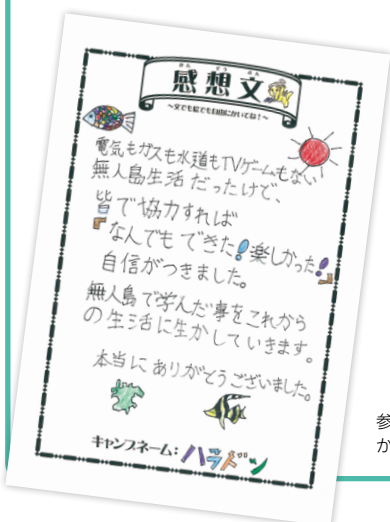 感想文
～文でも絵でも自由にかいてね！～
電気もガスも水道もTVゲームもない
無人島生活だったけど、
皆で協力すれば
『なんでもできた！楽しかった！』
自信がつきました。
無人島で学んだ事をこれから
の生活に生かしていきます。
本当にありがとうございました。
キャンプネーム：ハラドン
参
か